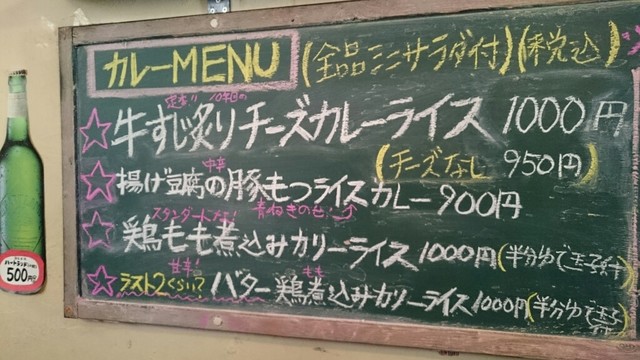 カレーMENU (全品ミニサラダ付)(税込)
牛すじ炙りチーズカレーライス 1000円
(チーズなし 950円)
中辛
揚げ豆腐の豚もつライスカレー 900円
スタンダードだよ! 青ねぎのせ
鶏もも煮込みカリーライス 1000円(半分ゆで玉子付)
甘辛!
ラスト2くらい? バターもも鶏煮込みカリーライス 1000円(半分ゆで玉子付)
ハートランド
500円